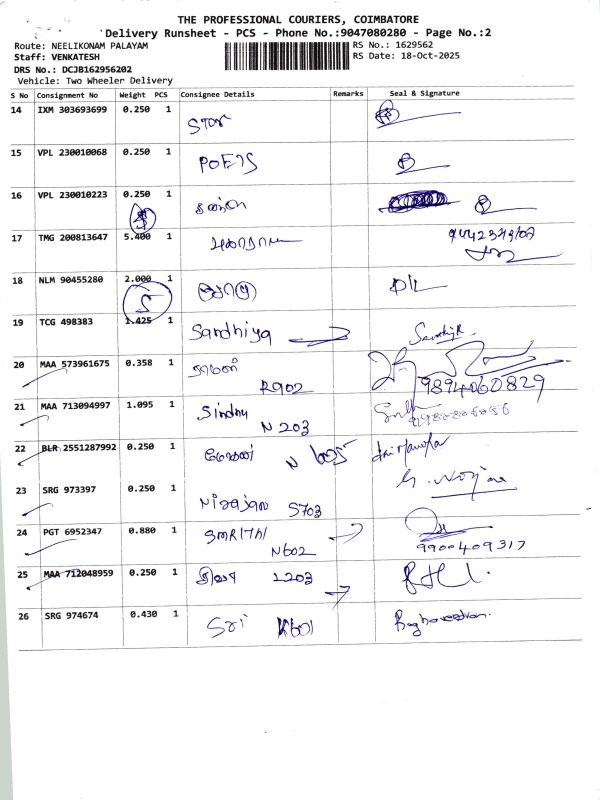 THE PROFESSIONAL COURIERS, COIMBATORE
Delivery Runsheet - PCS - Phone No.:9047080280 - Page No.:2
Route: NEELIKONAM PALAYAM
RS No.: 1629562
Staff: VENKATESH
RS Date: 18-Oct-2025
DRS No.: DCJB162956202
Vehicle: Two Wheeler Delivery
S No Consignment No Weight PCS Consignee Details Remarks Seal & Signature
14 IXM 303693699 0.250 1 STAR
15 VPL 230010068 0.250 1
16 VPL 230010223 0.250 1
17 TMG 200813647 5.400 1
18 NLM 90455280 2.000 1
19 TCG 498383 1.425 1 Sandhiya
20 MAA 573961675 0.358 1 R902 9894060829
21 MAA 713094997 1.095 1 Sindhu N 203
22 BLR 2551287992 0.250 1 N
23 SRG 973397 0.250 1 Nirajan S703
24 PGT 6952347 0.880 1 SMRITHI N602 9900409317
25 MAA 712048959 0.250 1 L203
26 SRG 974674 0.430 1 Sri K601